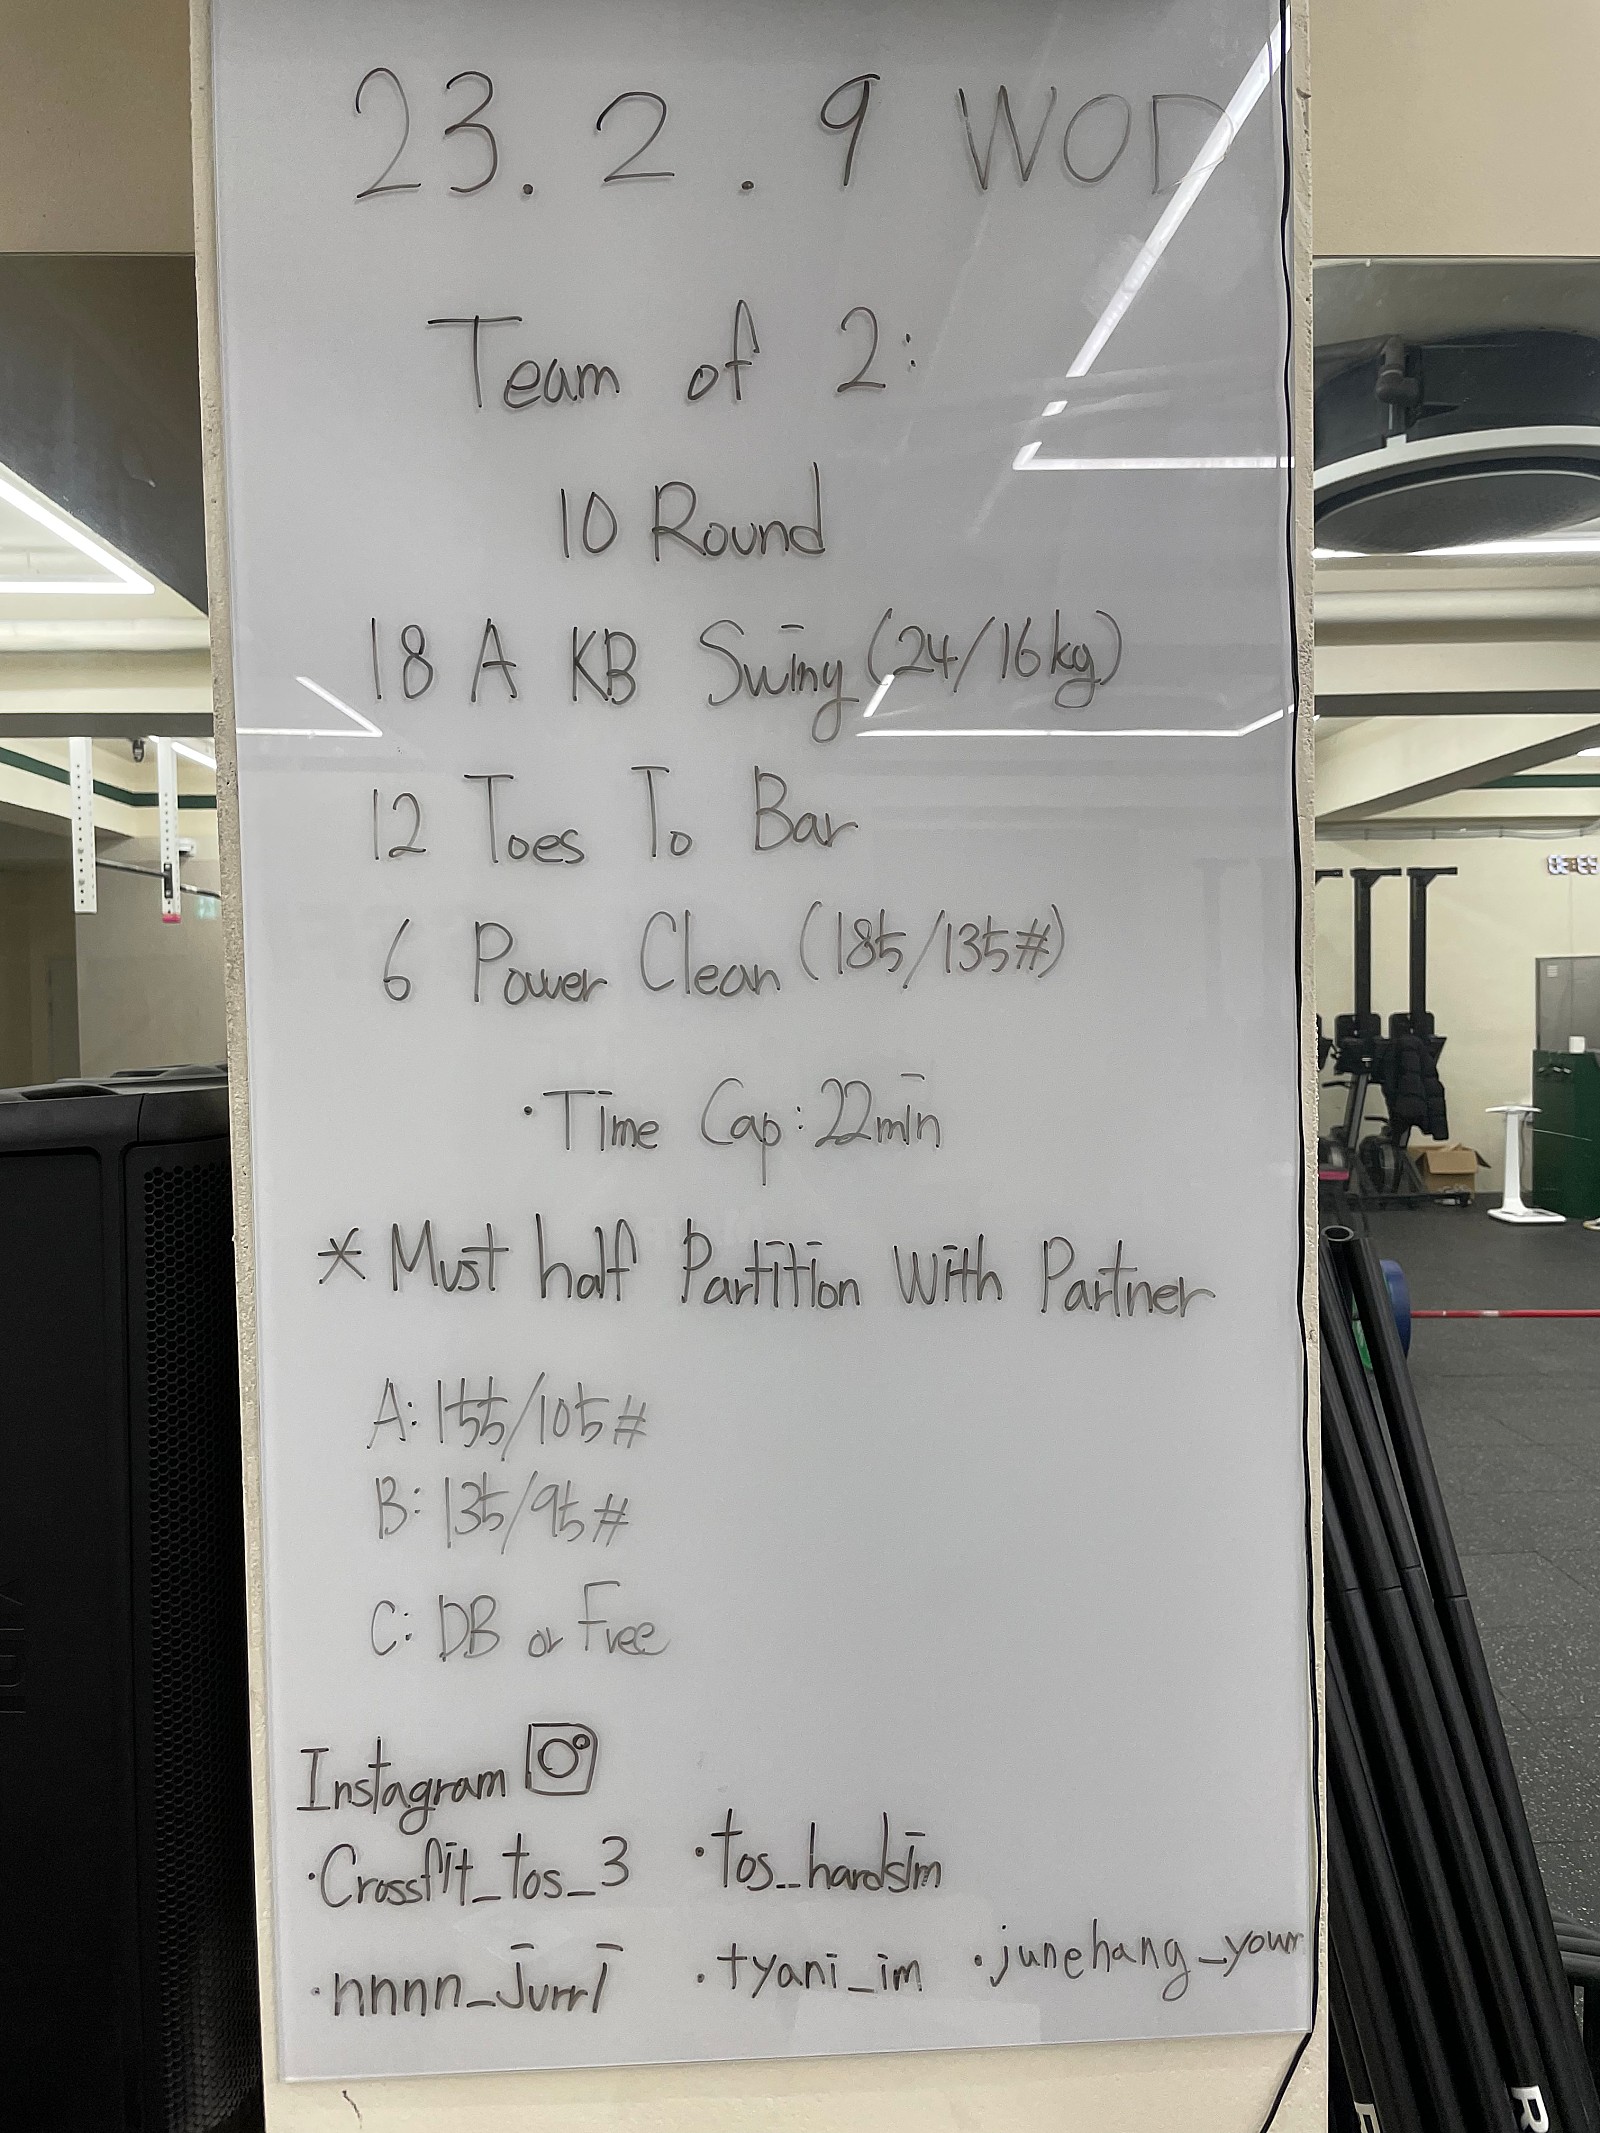 23.2.9 WOD
Team of 2:
10 Round
18 A KB Swing (24/16kg)
12 Toes To Bar
6 Power Clean (185/135#)
·Time Cap:22min
* Must half Partition With Partner
A: 155/105#
B: 135/95#
C: DB or Free
Instagram
·Crossfit_tos_3 ·tos_hardsim
·nnnn_jurri ·tyani_im ·junehang_youn
R